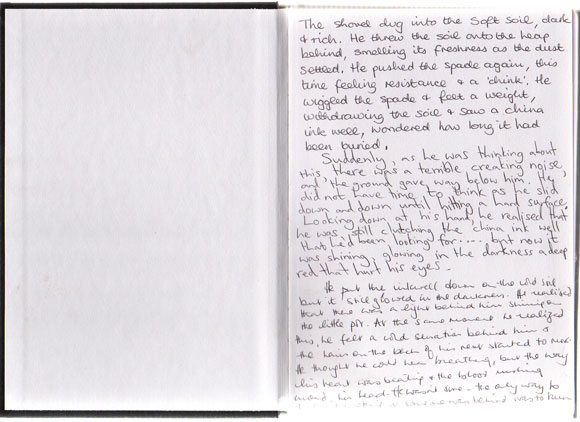 The shovel dug into the soft soil, dark
& rich. He threw the soil onto the heap
behind, smelling its freshness as the dust
settled. He pushed the spade again, this
time feeling resistance & a 'chink'. He
wiggled the spade & felt a weight,
withdrawing the soil & saw a china
ink well, wondered how long it had
been buried.
Suddenly, as he was thinking about
this, there was a terrible creaking noise
and the ground gave way below him. He
did not have time to think as he slid
down and down until hitting a hard surface.
Looking down at his hand, he realised that
he was still clutching the china ink well
that he'd been looking for.... but now it
was shining, glowing in the darkness a deep
red that hurt his eyes.
He put the inkwell down on the cold soil
but it still glowed in the darkness. He realized
that there was a light behind him shining on
the little pot. At the same moment he realized
this, he felt a cold sensation behind him &
the hairs on the back of his neck started to
He thought he could hear breathing, but the way
his heart was beating & the blood rushing
around his head. He wasn't sure - the only way to
was behind was to turn